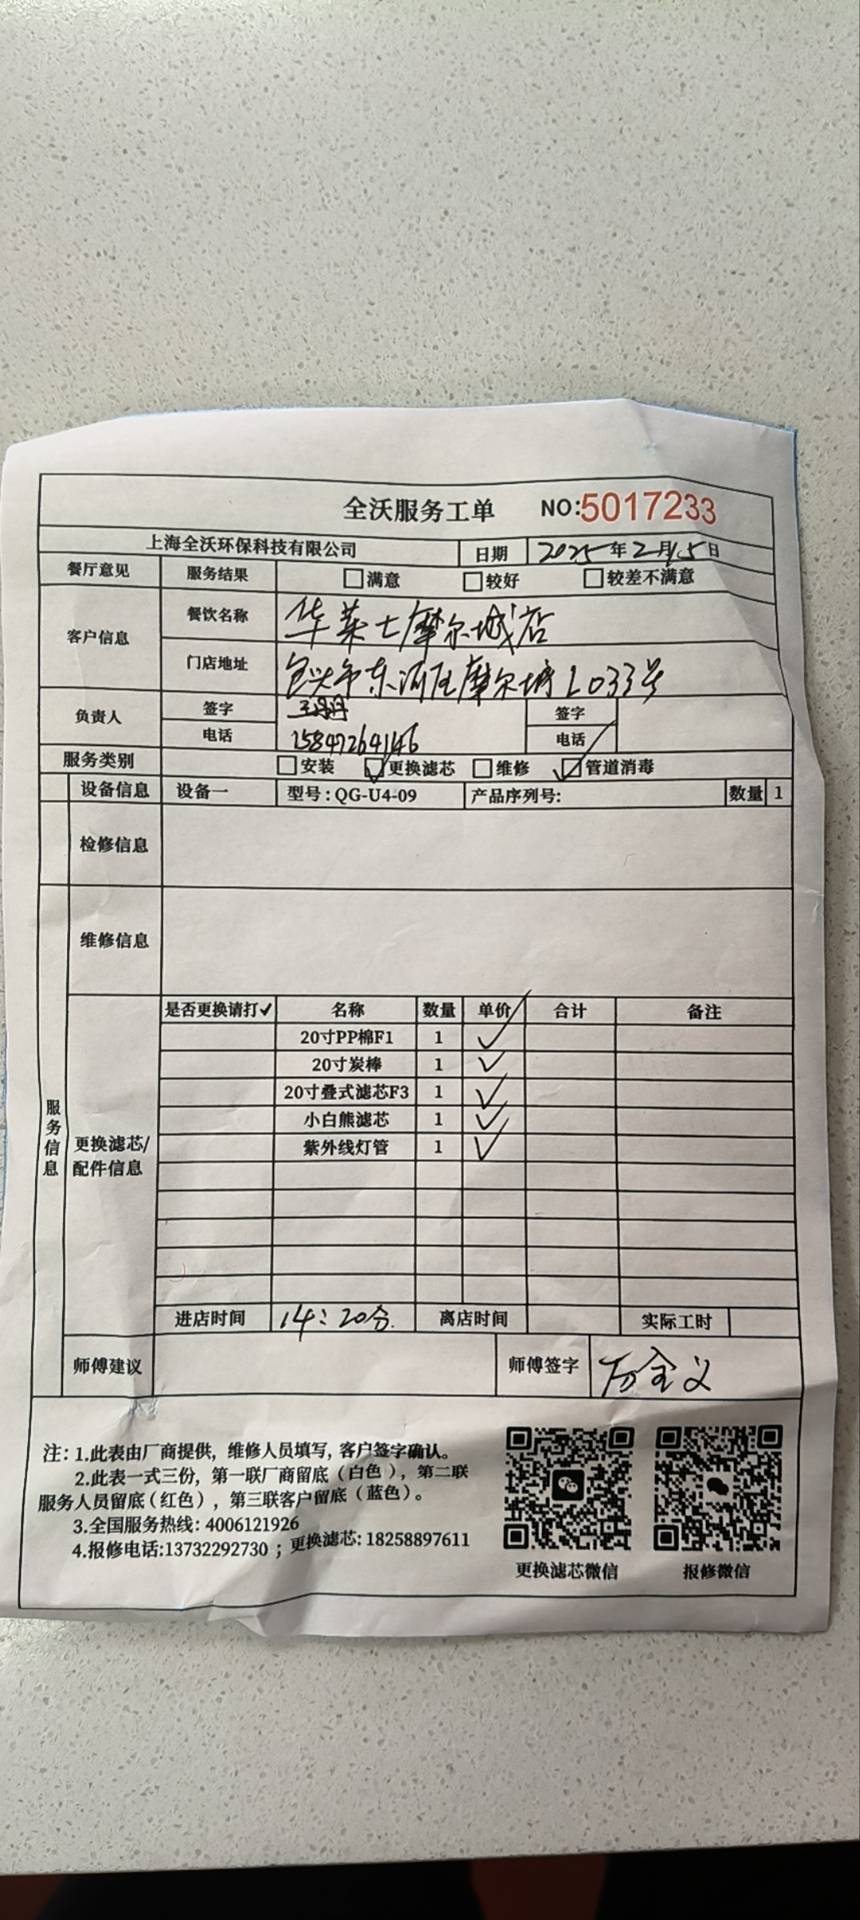 全沃服务工单 NO:5017233
上海全沃环保科技有限公司 日期 2025年2月15日
餐厅意见 服务结果 满意 较好 较差不满意
客户信息 餐饮名称 华莱士摩尔城店
门店地址 包头市东河区摩尔城L033号
负责人 签字 签字
电话 15847264146 电话
服务类别 安装 更换滤芯 维修 管道消毒
设备信息 设备一 型号:QG-U4-09 产品序列号: 数量 1
检修信息
维修信息
服务信息
更换滤芯/配件信息
是否更换请打✓ 名称 数量 单价 合计 备注
20寸PP棉F1 1 ✓
20寸炭棒 1 ✓
20寸叠式滤芯F3 1 ✓
小白熊滤芯 1 ✓
紫外线灯管 1 ✓
进店时间 14:20分. 离店时间 实际工时
师傅建议 师傅签字 万全义
注: 1.此表由厂商提供, 维修人员填写, 客户签字确认。
2.此表一式三份, 第一联厂商留底(白色), 第二联
服务人员留底(红色), 第三联客户留底(蓝色)。
3.全国服务热线: 4006121926
4.报修电话:13732292730 ; 更换滤芯: 18258897611
更换滤芯微信 报修微信